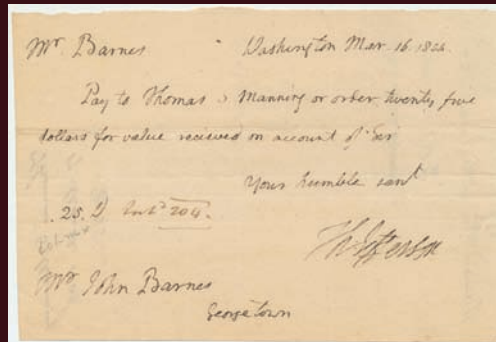 Mr. Barnes Washington Mar. 16. 1804.
Pay to Thomas Manning or order twenty five
dollars for value recieved on account of Sir
Your humble servt
25. D
Th: Jefferson
Mr. John Barnes
Georgetown